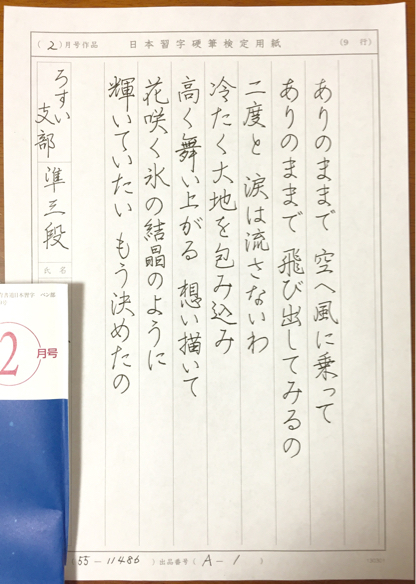 (2)月号作品 日本習字硬筆検定用紙 (9 行)
ありのままで 空へ風に乗って
ありのままで 飛び出してみるの
二度と 涙は流さないわ
冷たく大地を包み込み
高く舞い上がる 想い描いて
花咲く氷の結晶のように
輝いていたい もう決めたの
ろすい支部 準三段
氏名
2月号
55-11486 )出品番号( A-1 )